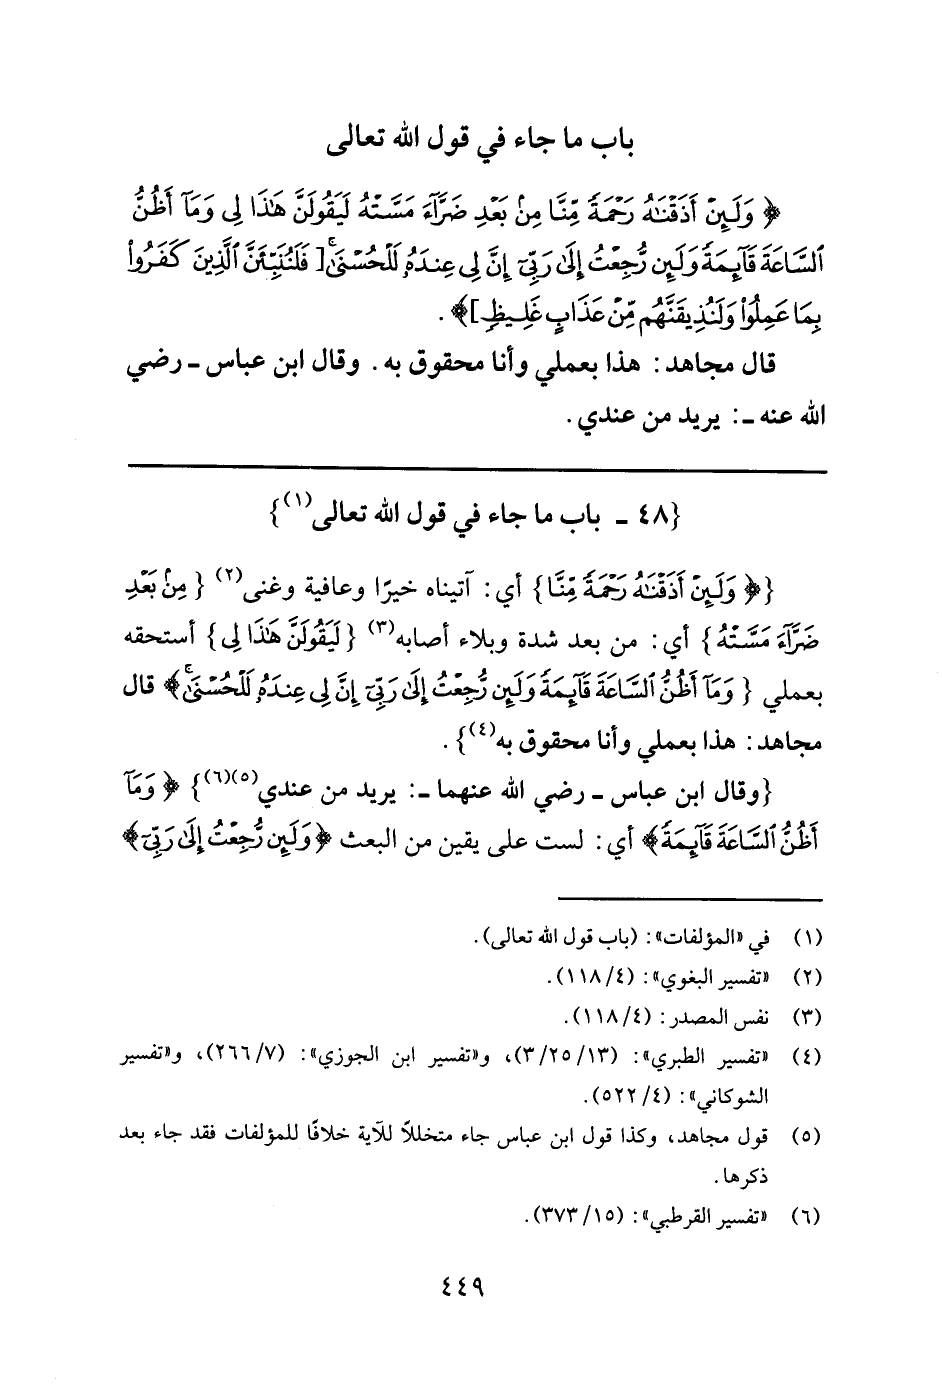 باب ما جاء في قول الله تعالى
﴿ وَلَئِنْ أَذَقْنَٰهُ رَحْمَةً مِّنَّا مِنۢ بَعْدِ ضَرَّآءَ مَسَّتْهُ لَيَقُولَنَّ هَٰذَا لِى وَمَآ أَظُنُّ
ٱلسَّاعَةَ قَآئِمَةً وَلَئِن رُّجِعْتُ إِلَىٰ رَبِّىٓ إِنَّ لِى عِندَهُۥ لَلْحُسْنَىٰۚ [فَلَنُنَبِّئَنَّ ٱلَّذِينَ كَفَرُوا۟
بِمَا عَمِلُوا۟ وَلَنُذِيقَنَّهُم مِّنْ عَذَابٍ غَلِيظٍ]﴾ .
قال مجاهد: هذا بعملي وأنا محقوق به. وقال ابن عباس ـ رضي
الله عنه ـ: يريد من عندي.
{٤٨ ـ باب ما جاء في قول الله تعالى(١)}
{﴿ وَلَئِنْ أَذَقْنَٰهُ رَحْمَةً مِّنَّا} أي: آتيناه خيرًا وعافية وغنى(٢) {مِنۢ بَعْدِ
ضَرَّآءَ مَسَّتْهُ} أي: من بعد شدة وبلاء أصابه(٣) {لَيَقُولَنَّ هَٰذَا لِى} أستحقه
بعملي {وَمَآ أَظُنُّ ٱلسَّاعَةَ قَآئِمَةً وَلَئِن رُّجِعْتُ إِلَىٰ رَبِّىٓ إِنَّ لِى عِندَهُۥ لَلْحُسْنَىٰۚ﴾ قال
مجاهد: هذا بعملي وأنا محقوق به(٤)}.
{وقال ابن عباس ـ رضي الله عنهما ـ: يريد من عندي(٥)(٦)} ﴿ وَمَآ
أَظُنُّ ٱلسَّاعَةَ قَآئِمَةً﴾ أي: لست على يقين من البعث ﴿وَلَئِن رُّجِعْتُ إِلَىٰ رَبِّىٓ﴾
(١) في «المؤلفات»: (باب قول الله تعالى).
(٢) «تفسير البغوي»: (٤/١١٨).
(٣) نفس المصدر: (٤/١١٨).
(٤) «تفسير الطبري»: (١٣/٢٥/٣)، و«تفسير ابن الجوزي»: (٧/٢٦٦)، و«تفسير
الشوكاني»: (٤/٥٢٢).
(٥) قول مجاهد، وكذا قول ابن عباس جاء متخللاً للآية خلافًا للمؤلفات فقد جاء بعد
ذكرها.
(٦) «تفسير القرطبي»: (١٥/٣٧٣).
٤٤٩